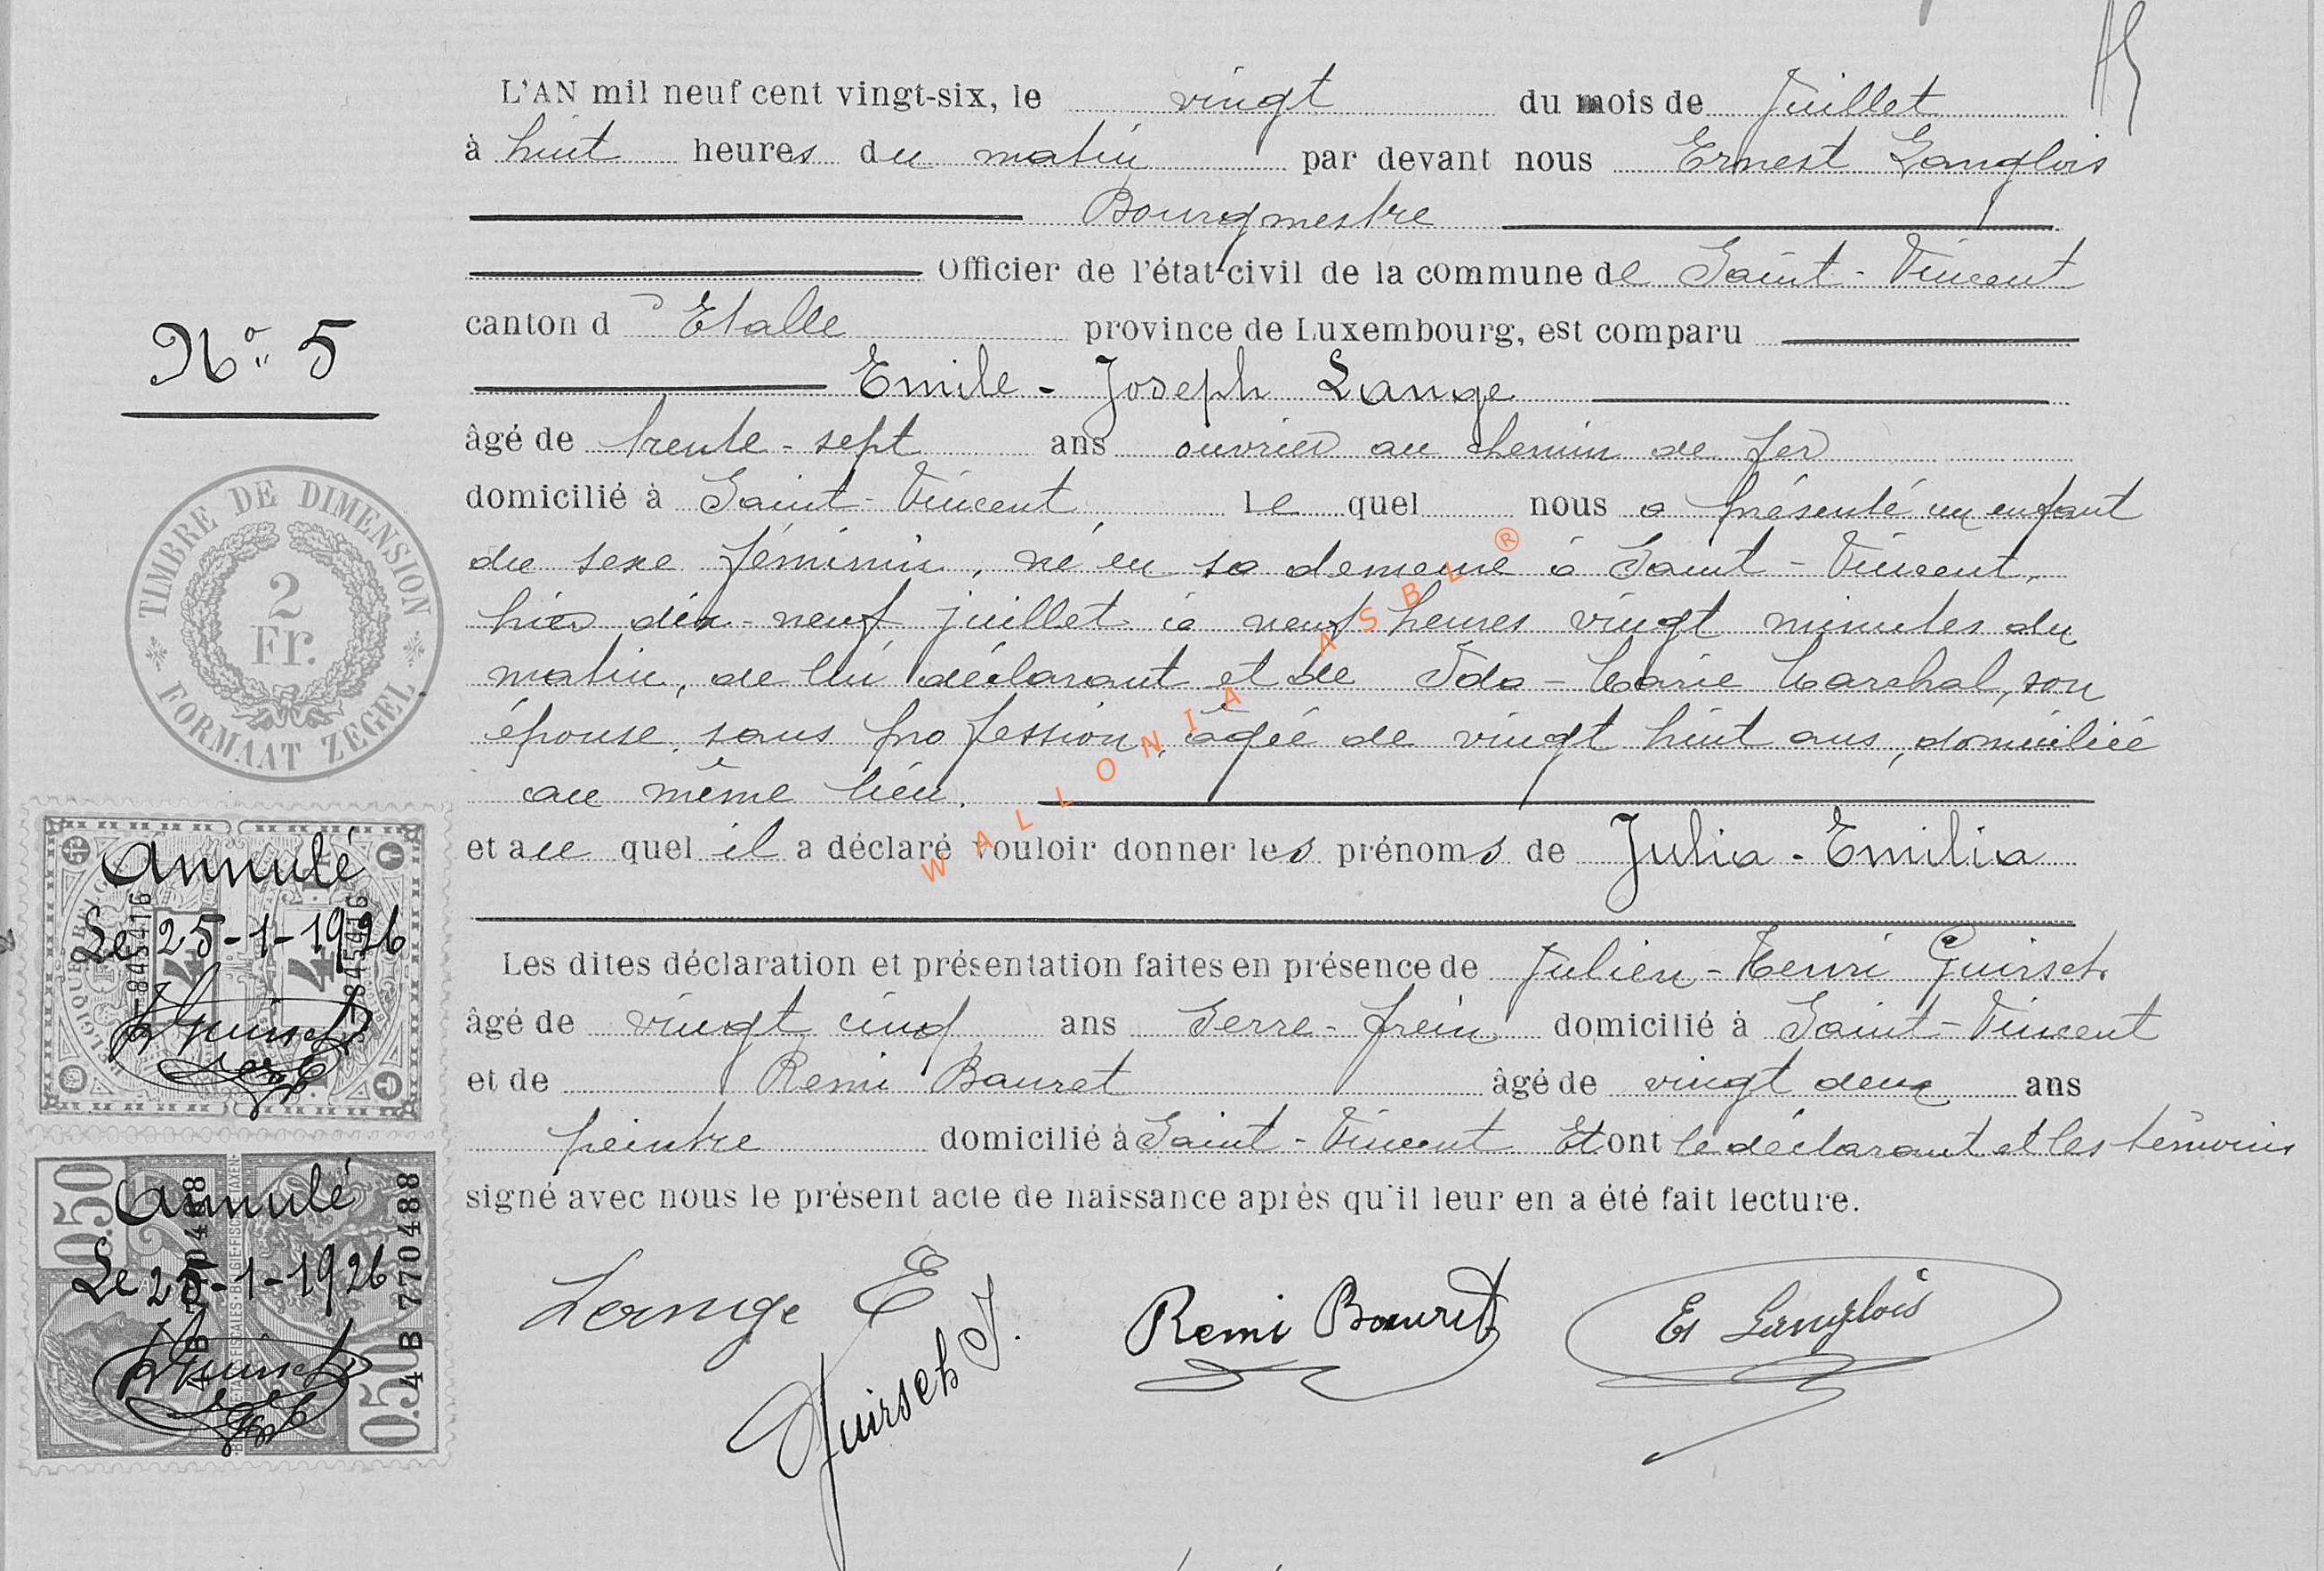 L'AN mil neuf cent vingt-six, le vingt du mois de Juillet
à huit heures du matin par devant nous Ernest Langlois
Bourgmestre
Officier de l'état-civil de la commune de Saint-Vincent
canton d'Etalle province de Luxembourg, est comparu
Emile-Joseph Lange
âgé de trente-sept ans ouvrier au chemin de fer
domicilié à Saint-Vincent, Le quel nous a présenté un enfant
du sexe féminin, né en sa demeure à Saint-Vincent,
hier dix-neuf juillet à neuf heures vingt minutes du
matin, de lui déclarant et de Ida-Marie Marchal, son
épouse, sans profession, âgée de vingt huit ans, domiciliée
au même lieu.
et au quel il a déclaré vouloir donner les prénoms de Julia-Emilia
Les dites déclaration et présentation faites en présence de Julien-Henri Guirsch
âgé de vingt cinq ans Serre-frein domicilié à Saint-Vincent
et de Remi Bauret âgé de vingt deux ans
peintre domicilié à Saint-Vincent Et ont le déclarant et les témoins
signé avec nous le présent acte de naissance après qu'il leur en a été fait lecture.
Lange E
Guirsch J.
Remi Bauret
Et Langlois
No. 5
TIMBRE DE DIMENSION
2
Fr.
FORMAAT ZEGEL
Annulé
Le 25-1-1926
845416
4 4
Annulé
Le 25-1-1926
4 B 770488
0.50
0.50
WALLONIA ASBL ®